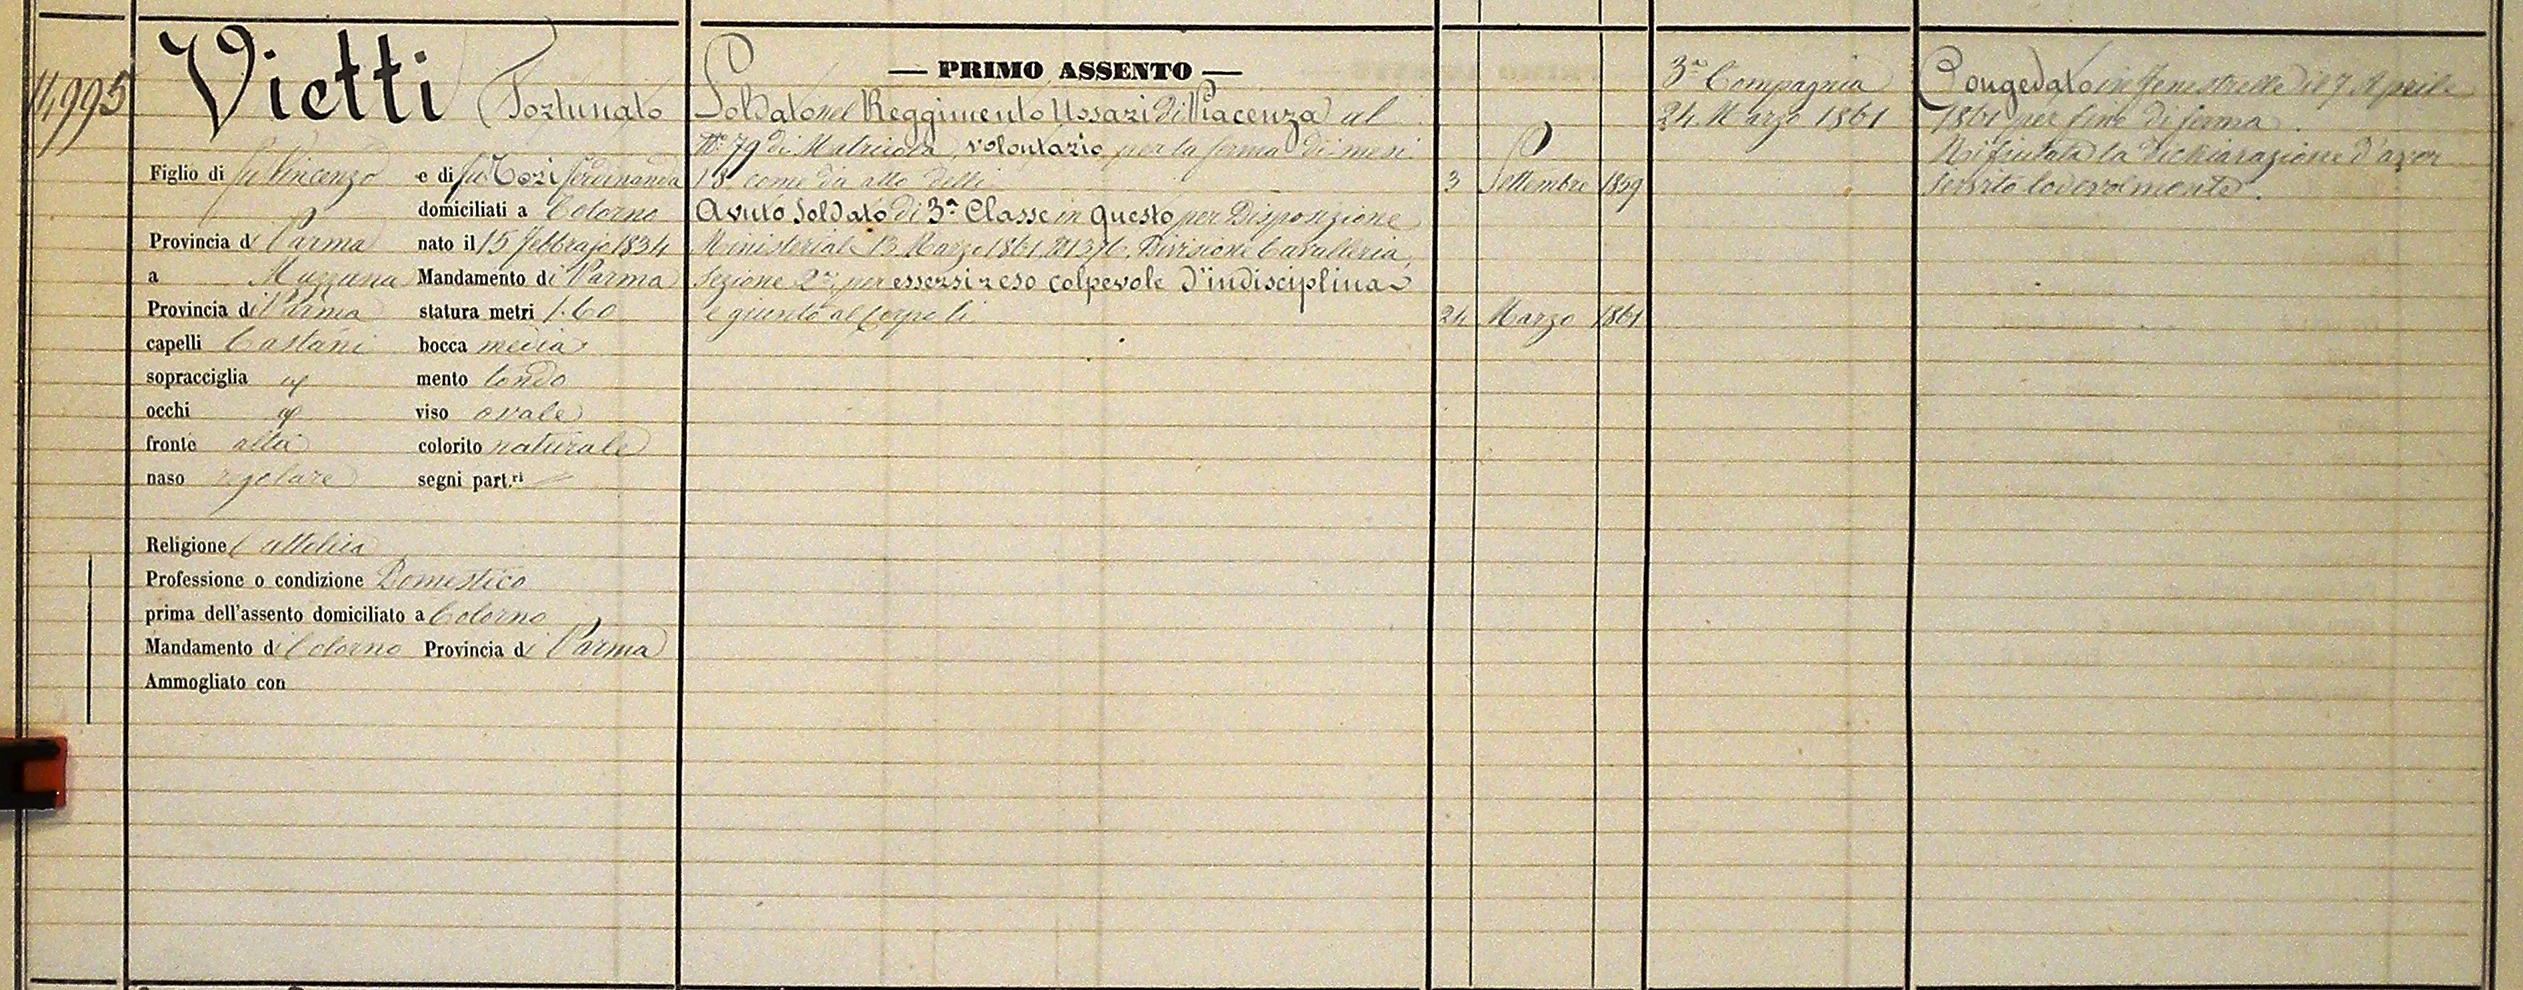 14995
Vietti Fortunato
Figlio di fu Vincenzo e di fu Tozi Ferdinanda
domiciliati a Colorno
Provincia di Parma nato il 15 Febbrajo 1834
a Mezzana Mandamento di Parma
Provincia di Parma statura metri 1.60
capelli Castani bocca media
sopracciglia id mento tondo
occhi id viso ovale
fronte alta colorito naturale
naso regolare segni part.ri
Religione Cattolica
Professione o condizione Domestico
prima dell'assento domiciliato a Colorno
Mandamento di Colorno Provincia di Parma
Ammogliato con
— PRIMO ASSENTO —
Soldato nel Reggimento Ussari di Piacenza al
N.° 79 di Matricola, volontario per la ferma di mesi
18 come da atto delli 3 Settembre 1859
Avuto Soldato di 3a Classe in questo per Disposizione
Ministeriale 13 Marzo 1861 N 1376. Divisione Cavalleria,
Sezione 2a, per essersi reso colpevole d'indisciplina
e giunto al Corpo li 24 Marzo 1861
3a Compagnia
24 Marzo 1861
Congedato in Fenestrelle il 7 Aprile
1861 per fine di ferma.
Rifiutata la dichiarazione d'aver
servito lodevolmente.